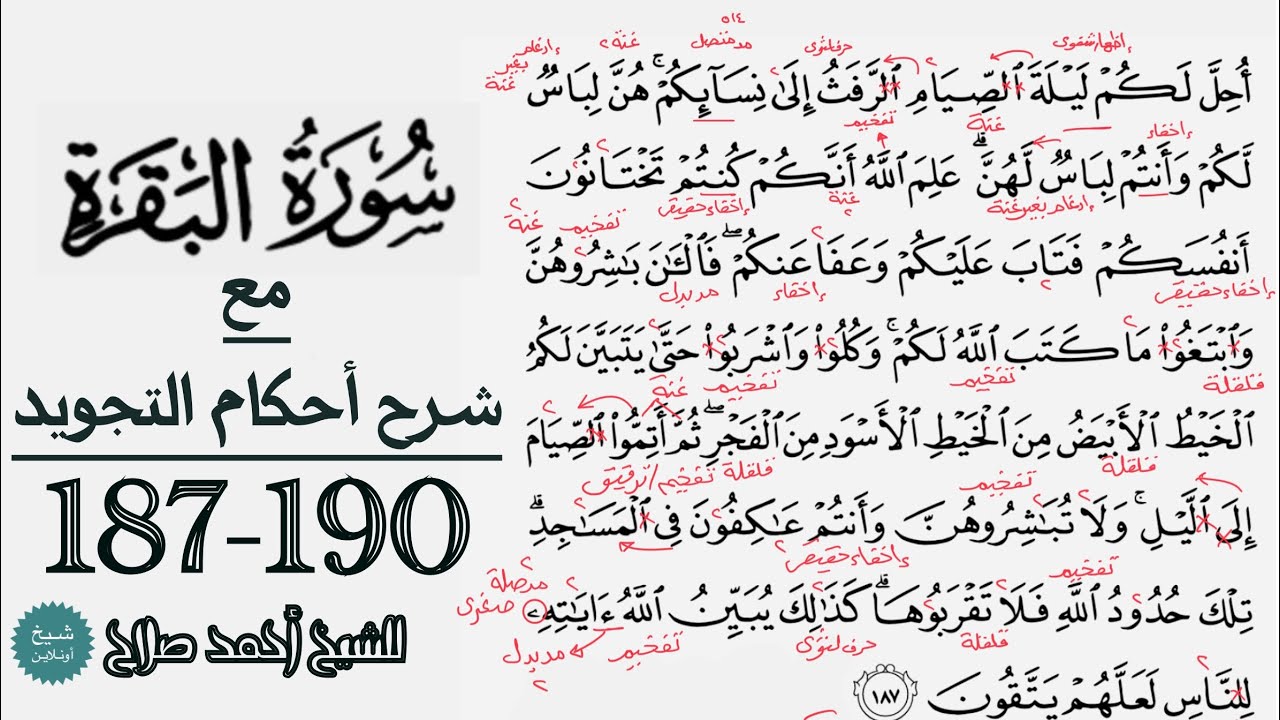 سُورَةُ البَقَرَةِ
مع
شرح أحكام التجويد
187-190
للشيخ أحمد صلاح
شيخ
أونلاين
٥١٤
إظهار شفوي
حرف لثوي
مد منفصل
غنة ٢
إدغام بغير غنة
أُحِلَّ لَكُمۡ لَيۡلَةَ ٱلصِّيَامِ ٱلرَّفَثُ إِلَىٰ نِسَآئِكُمۡۚ هُنَّ لِبَاسٞ
إخفاء
غنة
تفخيم
لَّكُمۡ وَأَنتُمۡ لِبَاسٞ لَّهُنَّۗ عَلِمَ ٱللَّهُ أَنَّكُمۡ كُنتُمۡ تَخۡتَانُونَ
إدغام بغير غنة
غنة ٢
إخفاء حقيقي
تفخيم
غنة ٢
أَنفُسَكُمۡ فَتَابَ عَلَيۡكُمۡ وَعَفَا عَنكُمۡۖ فَٱلۡـَٰٔنَ بَٰشِرُوهُنَّ
إخفاء حقيقي
٢
إخفاء
مد بدل
وَٱبۡتَغُواْ مَا كَتَبَ ٱللَّهُ لَكُمۡۚ وَكُلُواْ وَٱشۡرَبُواْ حَتَّىٰ يَتَبَيَّنَ لَكُمُ
قلقلة
تفخيم
تفخيم
غنة ٢
ٱلۡخَيۡطُ ٱلۡأَبۡيَضُ مِنَ ٱلۡخَيۡطِ ٱلۡأَسۡوَدِ مِنَ ٱلۡفَجۡرِۖ ثُمَّ أَتِمُّواْ ٱلصِّيَامَ
قلقلة
تفخيم
قلقلة
تفخيم/ترقيق
إِلَى ٱلَّيۡلِۚ وَلَا تُبَٰشِرُوهُنَّ وَأَنتُمۡ عَٰكِفُونَ فِي ٱلۡمَسَٰجِدِۗ
تفخيم
إخفاء حقيقي
مد صلة صغرى
تِلۡكَ حُدُودُ ٱللَّهِ فَلَا تَقۡرَبُوهَاۗ كَذَٰلِكَ يُبَيِّنُ ٱللَّهُ ءَايَٰتِهِۦ
قلقلة
حرف لثوي
تفخيم
مد بدل
٢
لِلنَّاسِ لَعَلَّهُمۡ يَتَّقُونَ ١٨٧